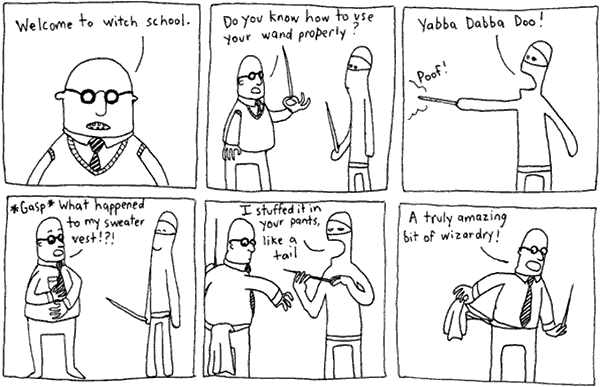 Welcome to witch school.
Do you know how to use
your wand properly?
Yabba Dabba Doo!
Poof!
*Gasp* What happened
to my sweater
vest!?!
I stuffed it in
your pants,
like a
tail
A truly amazing
bit of wizardry!